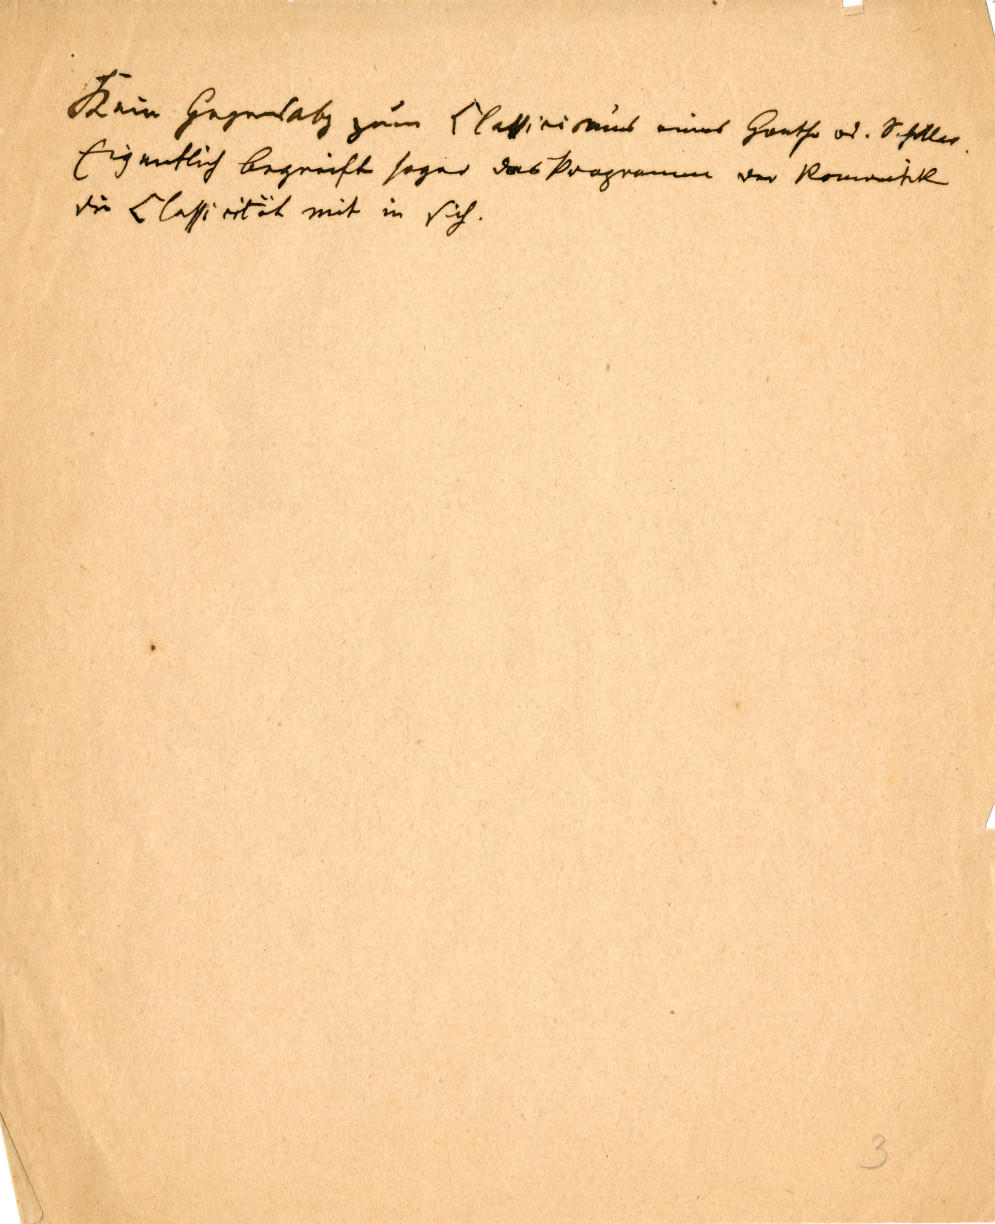 Kein Gegensatz zum Classicismus eines Goethe od. Schiller.
Eigentlich begreift sogar das Programm der Romantik
die Classicität mit in sich.
3